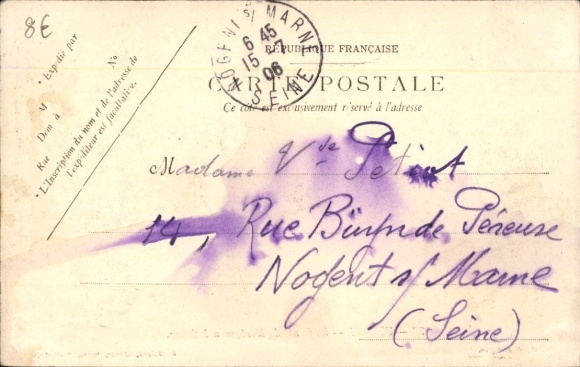 8€
NOGENT s/ MARNE
6 45
15 - 7
06
SEINE
RÉPUBLIQUE FRANÇAISE
CARTE POSTALE
Ce côté est exclusivement réservé à l'adresse
* Expédié par
M
No
Dom à
Rue
* L'Inscription du nom et de l'adresse de
l'expéditeur est facultative.
Madame Vde Petiot
14, Rue de Péreuse
Nogent s/ Marne
(Seine)